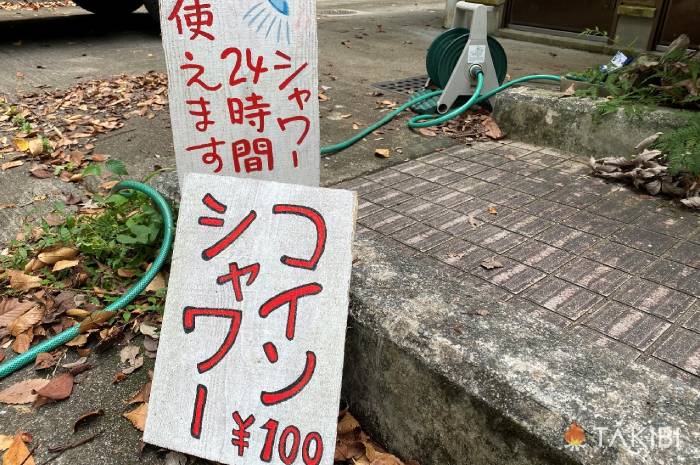 シャワー
24時間
使えます
コイン
シャワー
¥100
TAKIBI